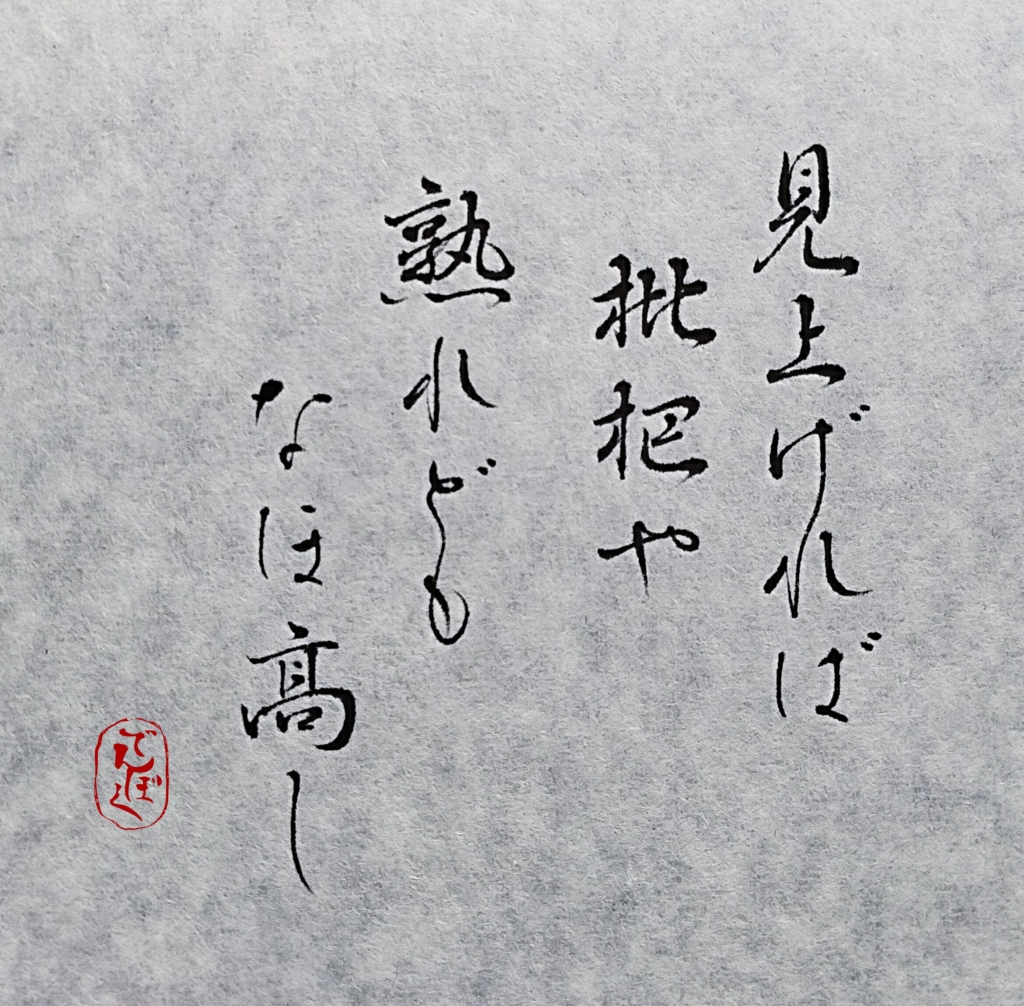 見上げれば
枇杷や
熟れども
なほ高し
でんぼく